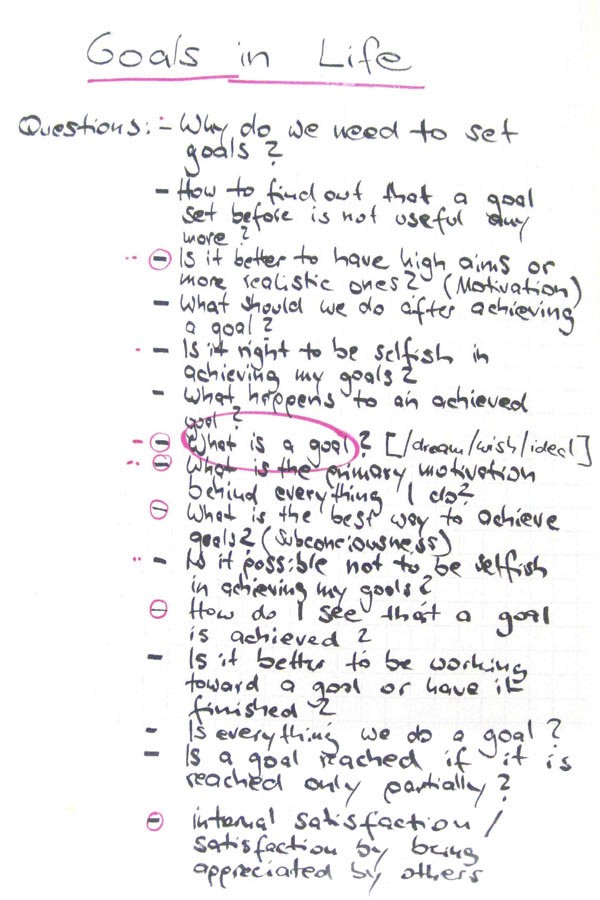 Goals in Life
Questions: - Why do we need to set
goals?
- How to find out that a goal
set before is not useful any
more?
- Is it better to have high aims or
more realistic ones? (Motivation)
- What should we do after achieving
a goal?
- Is it right to be selfish in
achieving my goals?
- What happens to an achieved
goal?
- What is a goal? [/dream/wish/ideal]
- What is the primary motivation
behind everything I do?
- What is the best way to achieve
goals? (Subconciousness)
- Is it possible not to be selfish
in achieving my goals?
- How do I see that a goal
is achieved?
- Is it better to be working
toward a goal or have it
finished?
- Is everything we do a goal?
- Is a goal reached if it is
reached only partially?
- internal satisfaction /
satisfaction by being
appreciated by others